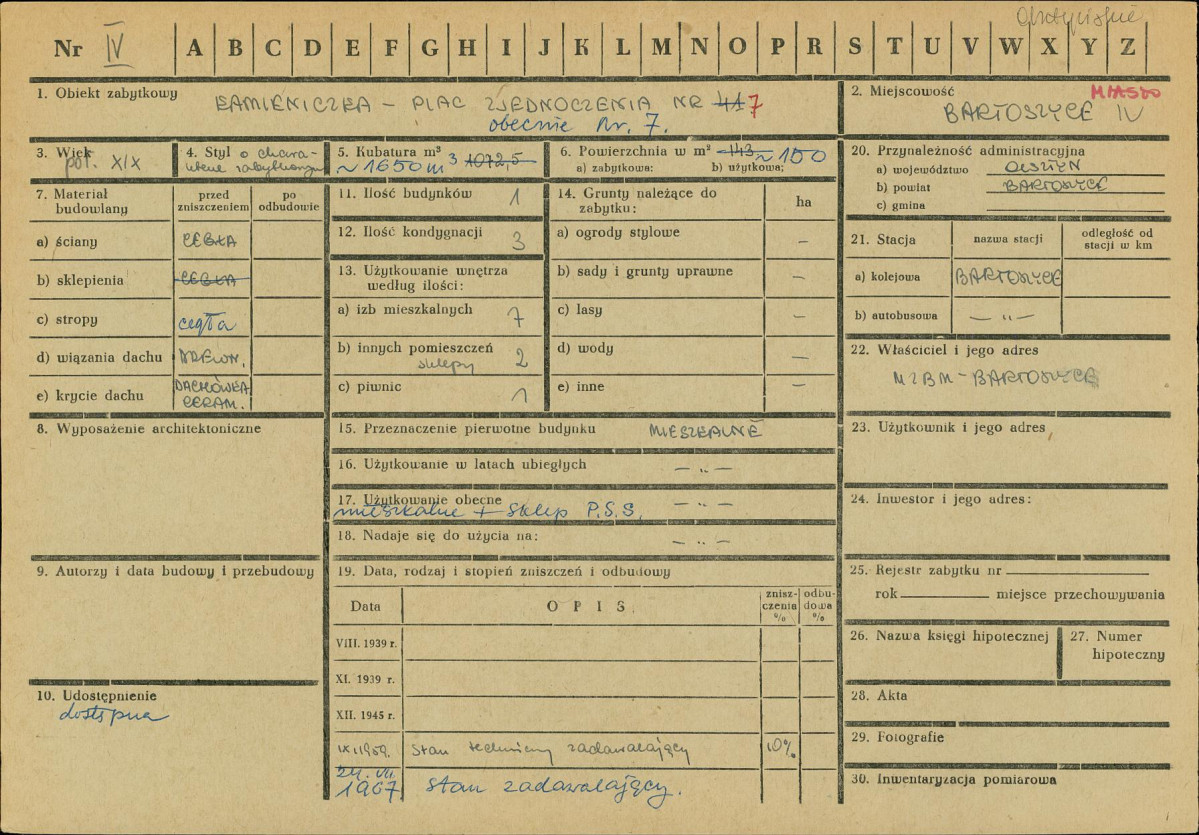 Nr IV A B C D E F G H I J K L M N O P R S T U V W X Y Z
1. Obiekt zabytkowy KAMIENICZKA – PLAC ZJEDNOCZENIA NR 41 7
obecnie Nr. 7.
2. Miejscowość MIASTO
BARTOSZYCE IV
3. Wiek
poł. XIX
4. Styl o chara-
kterze zabytkowym
5. Kubatura m³
~ 1650 m³ 1072,5
6. Powierzchnia w m² 143 ~ 150
a) zabytkowa: b) użytkowa;
20. Przynależność administracyjna
a) województwo OLSZTYN
b) powiat BARTOSZYCE
c) gmina
7. Materiał budowlany
przed zniszczeniem
po odbudowie
a) ściany CEGŁA
b) sklepienia CEGŁA
c) stropy cegła
d) wiązania dachu DREWN.
e) krycie dachu DACHÓWKA
CERAM.
11. Ilość budynków 1
12. Ilość kondygnacji 3
13. Użytkowanie wnętrza
według ilości:
a) izb mieszkalnych 7
b) innych pomieszczeń 2
sklepy
c) piwnic 1
14. Grunty należące do
zabytku: ha
a) ogrody stylowe –
b) sady i grunty uprawne –
c) lasy –
d) wody –
e) inne –
21. Stacja nazwa stacji odległość od
stacji w km
a) kolejowa BARTOSZYCE
b) autobusowa — „ —
22. Właściciel i jego adres
MZBM – BARTOSZYCE
8. Wyposażenie architektoniczne
15. Przeznaczenie pierwotne budynku MIESZKALNE
16. Użytkowanie w latach ubiegłych — „ —
17. Użytkowanie obecne — „ —
mieszkalne + sklep P.S.S.
18. Nadaje się do użycia na: — „ —
23. Użytkownik i jego adres
24. Inwestor i jego adres:
9. Autorzy i data budowy i przebudowy
19. Data, rodzaj i stopień zniszczeń i odbudowy
Data OPIS znisz-
czenia
%
odbu-
dowa
%
VIII. 1939 r.
XI. 1939 r.
XII. 1945 r.
IX.1959. Stan techniczny zadawalający 10%
24. VII.
1967 Stan zadawalający.
25. Rejestr zabytku nr
rok miejsce przechowywania
26. Nazwa księgi hipotecznej
27. Numer
hipoteczny
10. Udostępnienie
dostępna
28. Akta
29. Fotografie
30. Inwentaryzacja pomiarowa